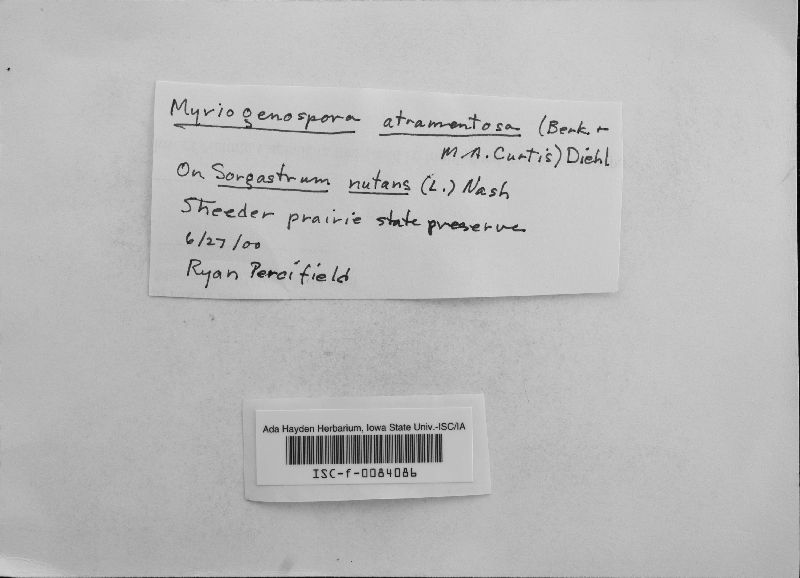 Myriogenospora atramentosa (Berk. &
M.A. Curtis) Diehl
On Sorgastrum nutans (L.) Nash
Sheeder prairie state preserve
6/27/00
Ryan Percifield
Ada Hayden Herbarium, Iowa State Univ.-ISC/IA
ISC-f-0084086